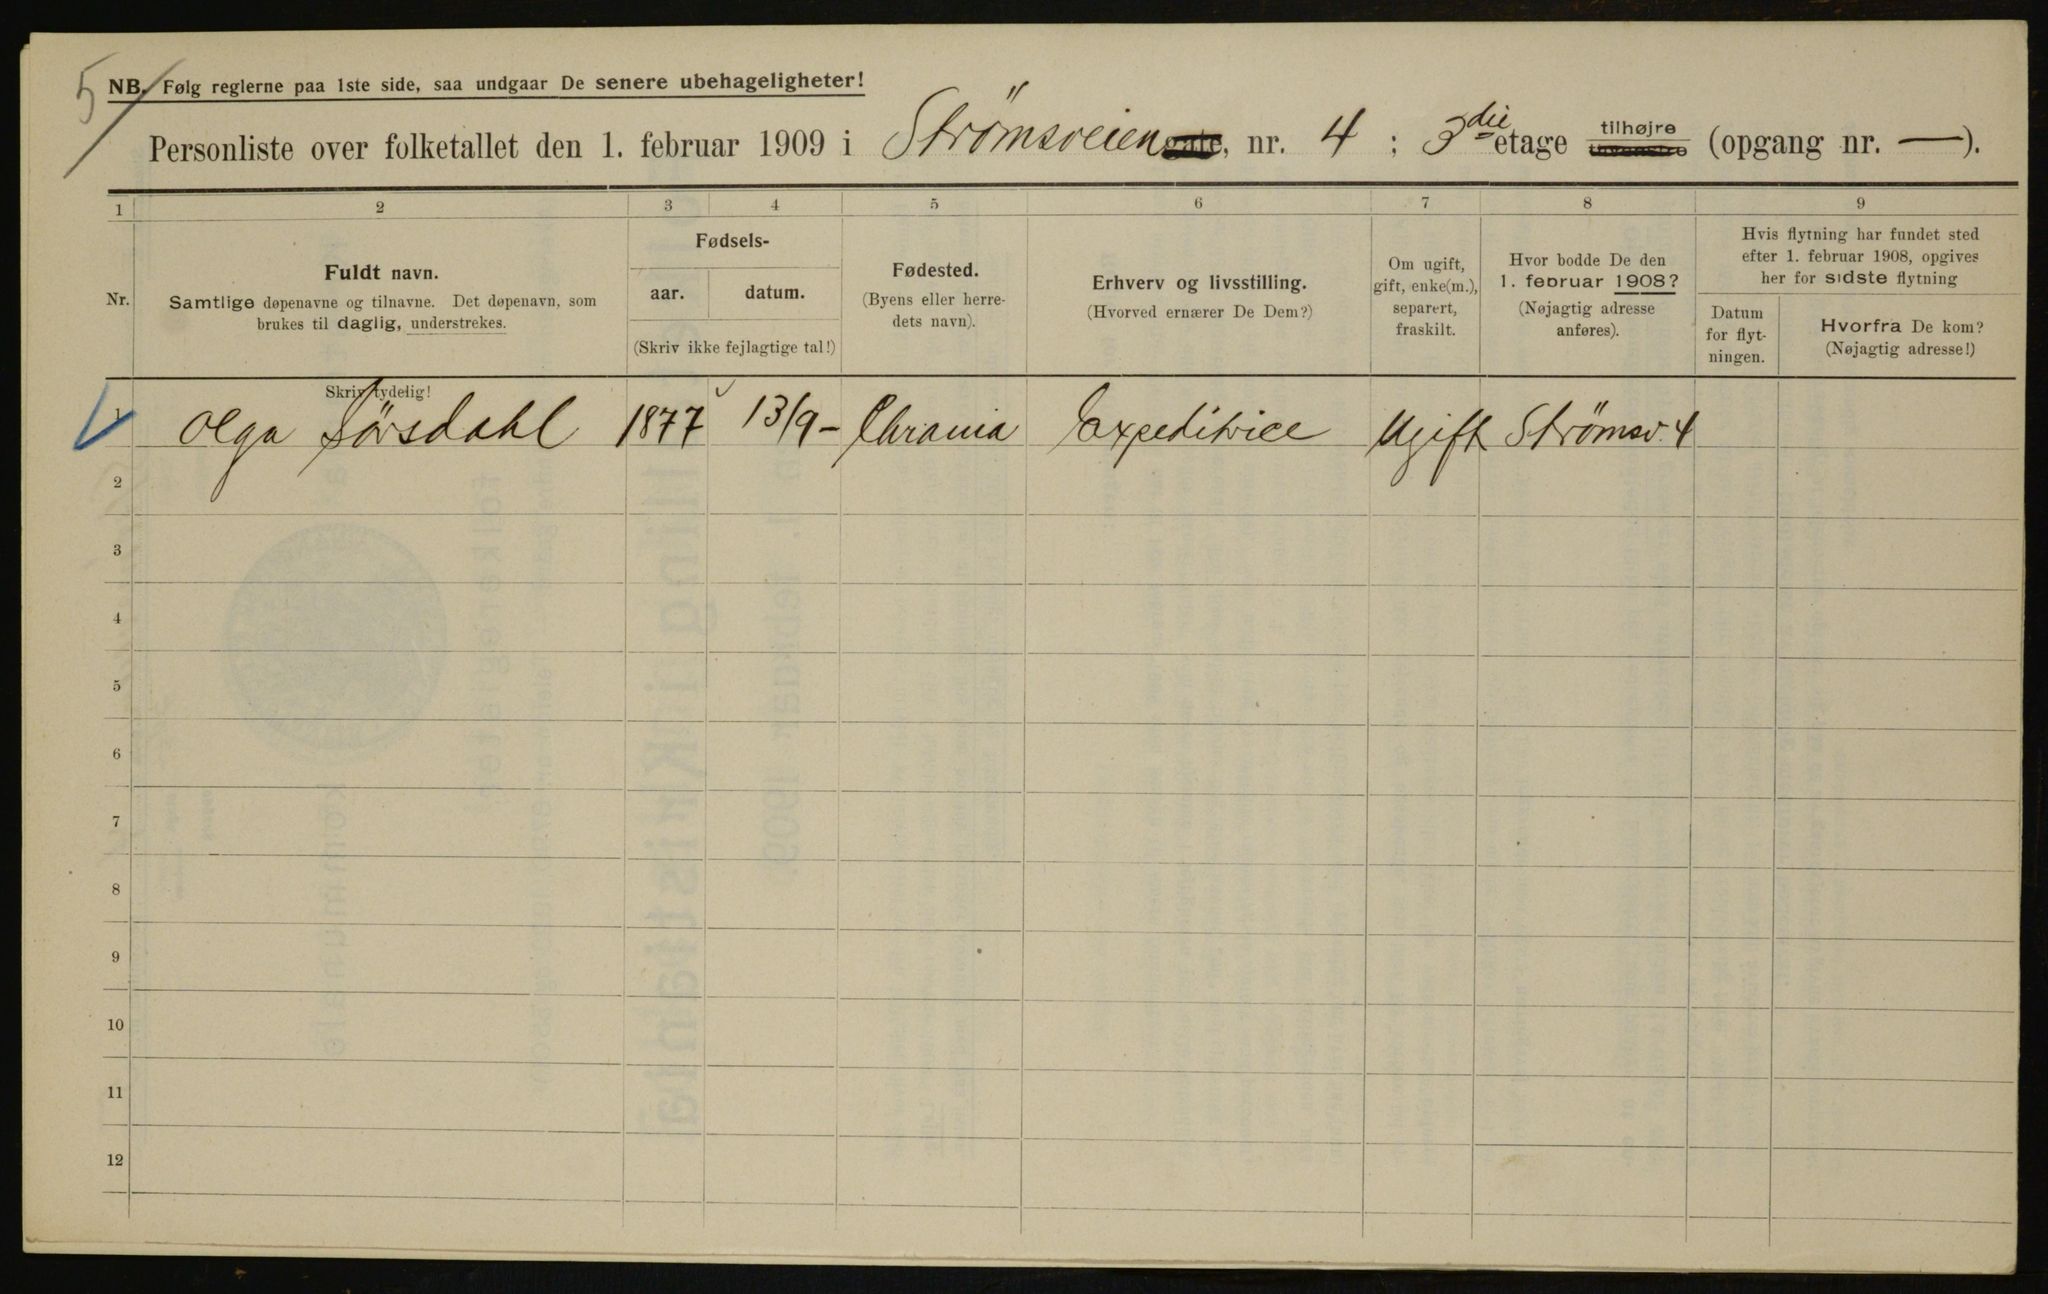 5/
NB. Følg reglerne paa 1ste side, saa undgaar De senere ubehageligheter!
Personliste over folketallet den 1. februar 1909 i Strømsveien gate, nr. 4 ; 3die etage tilhøjre tilvenstre (opgang nr. —).
1 2 3 4 5 6 7 8 9
Nr.
Fuldt navn.
Samtlige døpenavne og tilnavne. Det døpenavn, som
brukes til daglig, understrekes.
Fødsels-
aar. datum.
(Skriv ikke fejlagtige tal!)
Fødested.
(Byens eller herre-
dets navn).
Erhverv og livsstilling.
(Hvorved ernærer De Dem?)
Om ugift,
gift, enke(m.),
separert,
fraskilt.
Hvor bodde De den
1. februar 1908?
(Nøjagtig adresse
anføres).
Hvis flytning har fundet sted
efter 1. februar 1908, opgives
her for sidste flytning
Datum
for flyt-
ningen.
Hvorfra De kom?
(Nøjagtig adresse!)
Skriv tydelig!
1 Olga Sörsdahl 1877 13/9- Chrania Expeditrice Ugift Strömsv. 4
2
3
4
5
6
7
8
9
10
11
12